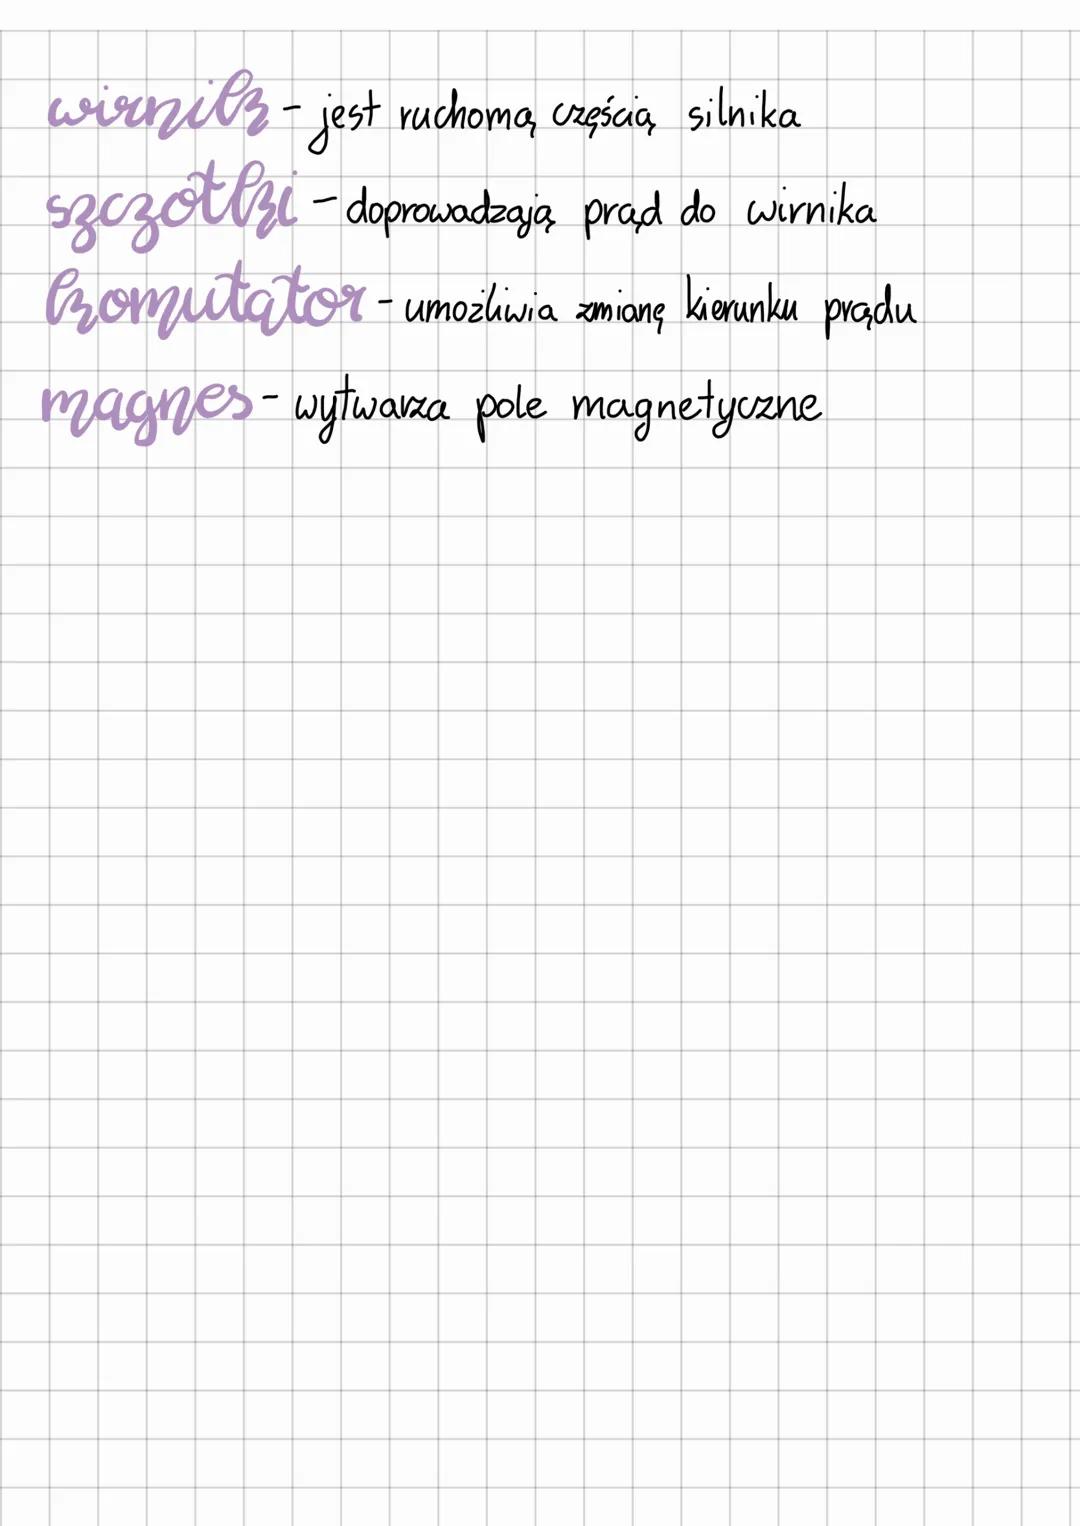 wirnik - jest ruchomą częścią silnika
szczotki - doprowadzają prąd do wirnika
komutator - umożliwia zmianę kierunku prądu
magnes - wytwarza pole magnetyczne